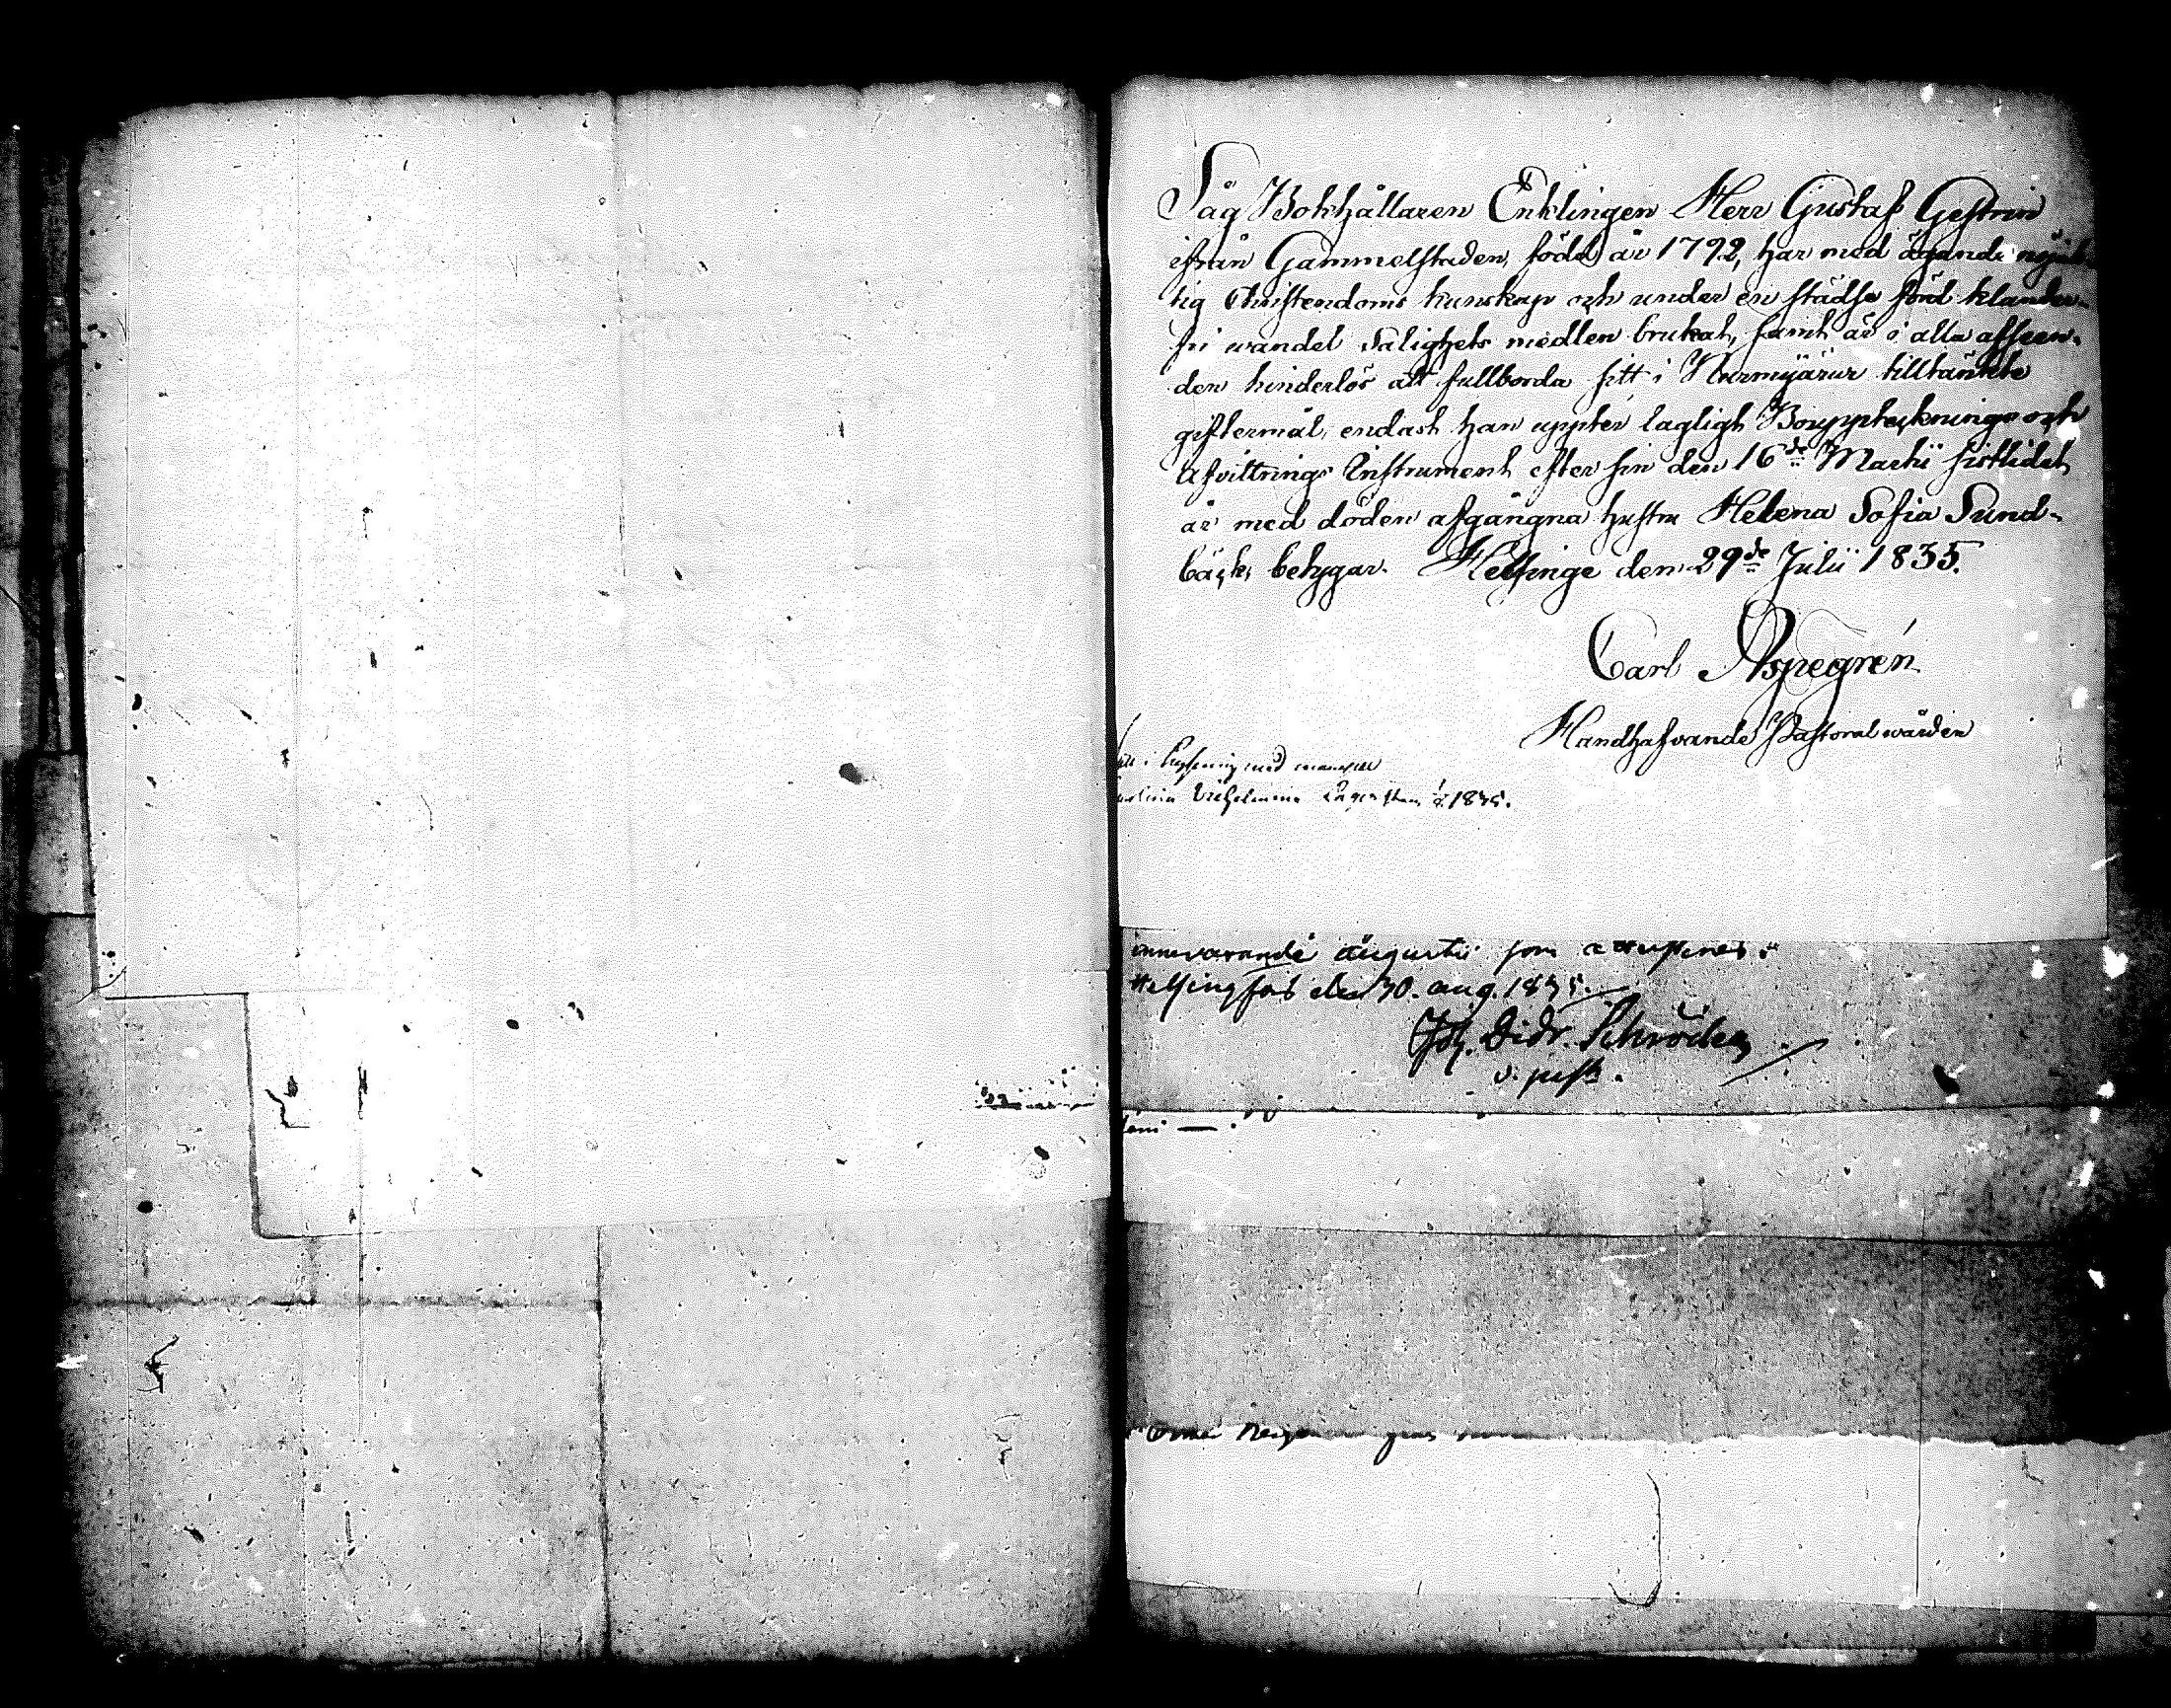 Såg Bokhållaren Enklingen Herr Gustaf Gestrin
ifrån Gammelstaden, född år 1792, har med ägande nöjak-
tig Christendoms kunskap och under en städse förd klander-
fri wandel Salighets medlen brukat, samt är i alla afseen-
den hinderlös att fullborda sitt i Nurmijärwi tilltänkte
giftermål, endast han uppter lagligt Bouppteknings och
Afvittrings Instrument efter sin den 16de Martii sistledet
år med döden afgångna hustru Helena Sofia Sund-
bäck, betygar. Helsinge den 29de Julii 1835.
Carl Aspegrén
Handhafvande Pastoral wården
i med
Vilhelmina 1835.
innevarande Augustii som attesteras.
Helsingfors den 30. aug. 1835.
Joh. Didr. Schröder
v. past.